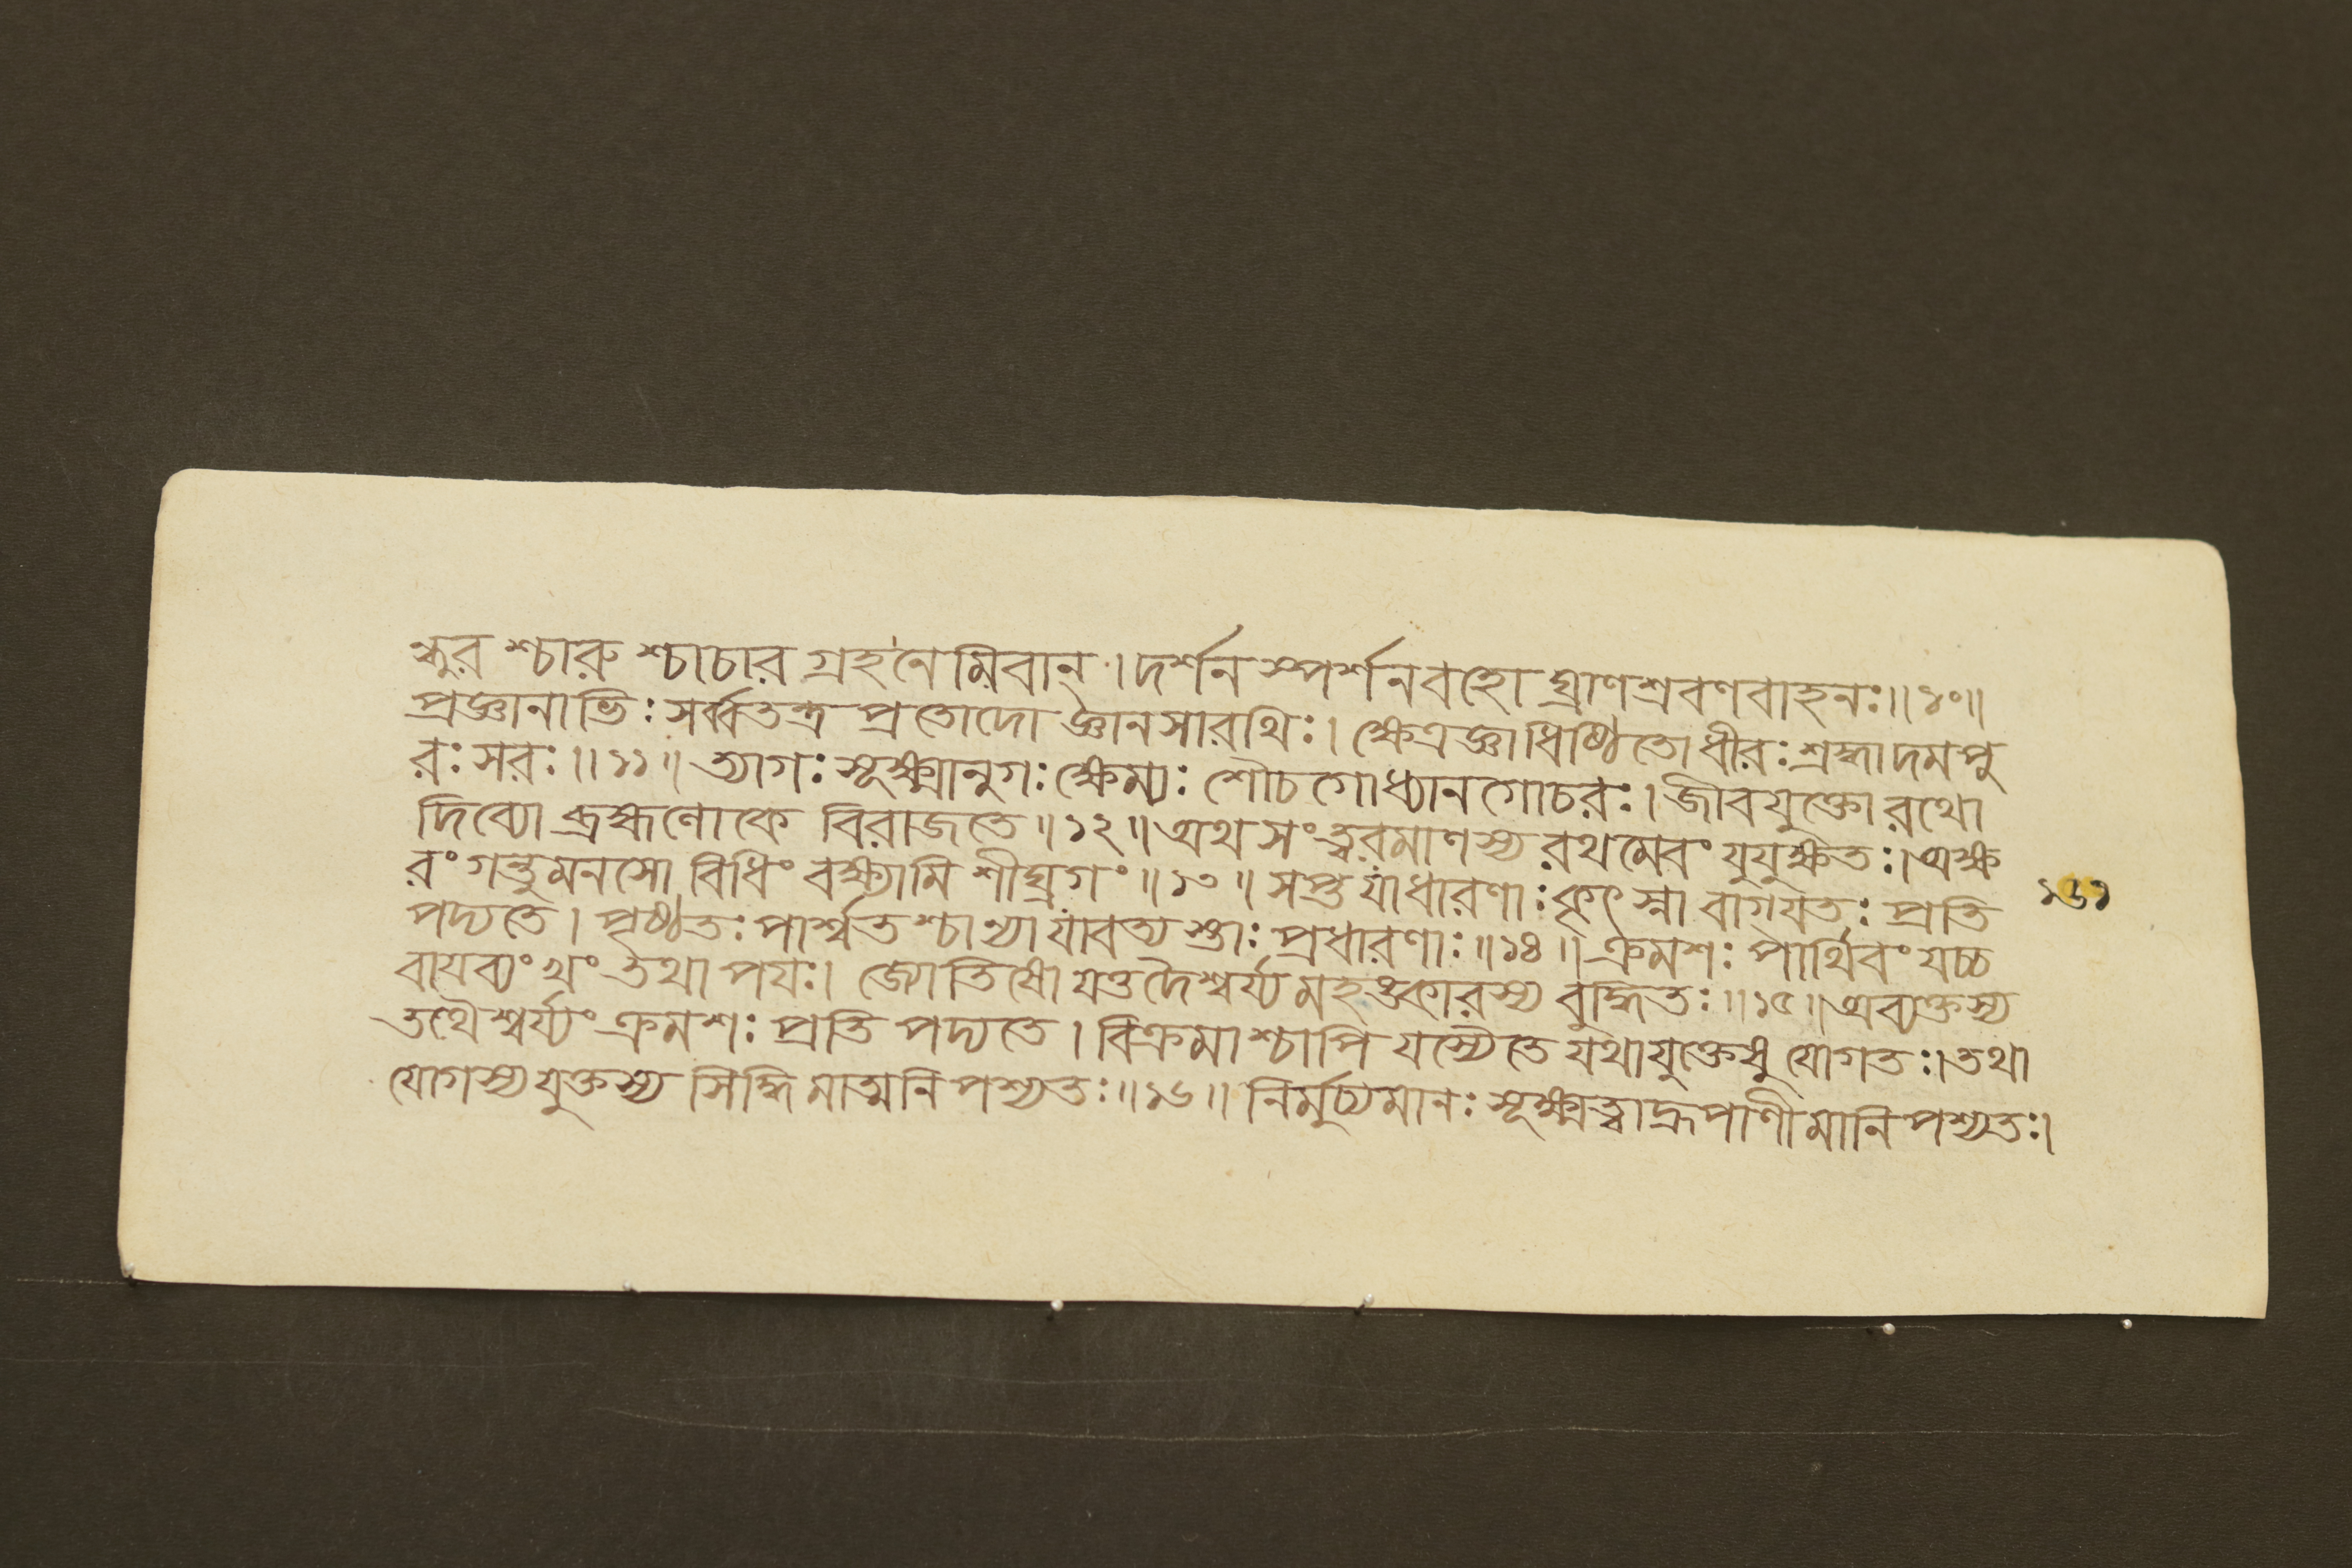 ন্ধুর শ্চারু শ্চাচার গ্রহনেমিবান্।দর্শন স্পর্শনবহো ঘ্রাণশ্রবণবাহনঃ॥১০॥
প্রজ্ঞানাভিঃ সর্ব্বতন্ত্র প্রতোদো জ্ঞানসারথিঃ। ক্ষেত্রজ্ঞাধিষ্ঠিতো ধীরঃ শ্রদ্ধাদমপু
রঃ সরঃ॥১১॥ ত্যাগঃ সূক্ষ্মানুগঃ ক্ষেম্যঃ শৌচ গোধ্যান গোচরঃ। জীবযুক্তো রথো
দিব্যো ব্রহ্মণোকে বিরাজতে॥১২॥ অথ সংত্বরমাণস্য রথমেবং যুযুক্ষতঃ। অক্ষ
রং গন্তুমনসো বিধিং বক্ষ্যামি শীঘ্রগং॥১৩॥ সপ্ত যাধারণাঃ কৃৎস্না বাগ্যতঃ প্রতি
পদ্যতে। পৃষ্ঠতঃ পার্শ্বত শ্চান্যা যাবত্য স্তাঃ প্রধারণাঃ॥১৪॥ ক্রমশঃ পার্থিবং যচ্চ
বায়ব্যং খং তথা পয়ঃ। জ্যোতিষো যত্তদৈশ্বর্য্য মহঙ্কারস্য বুদ্ধিতঃ॥১৫॥ অব্যক্তস্য
তথৈশ্বর্য্যং ক্রমশঃ প্রতি পদ্যতে। বিক্রমাশ্চাপি যস্যৈতে যথাযুক্তেষু যোগতঃ। তথা
যোগস্য যুক্তস্য সিদ্ধি মাত্মনি পশ্যতঃ॥১৬॥ নির্মুচ্যমানঃ সূক্ষ্মত্বাদ্রূপাণীমানি পশ্যতঃ।
১৬১